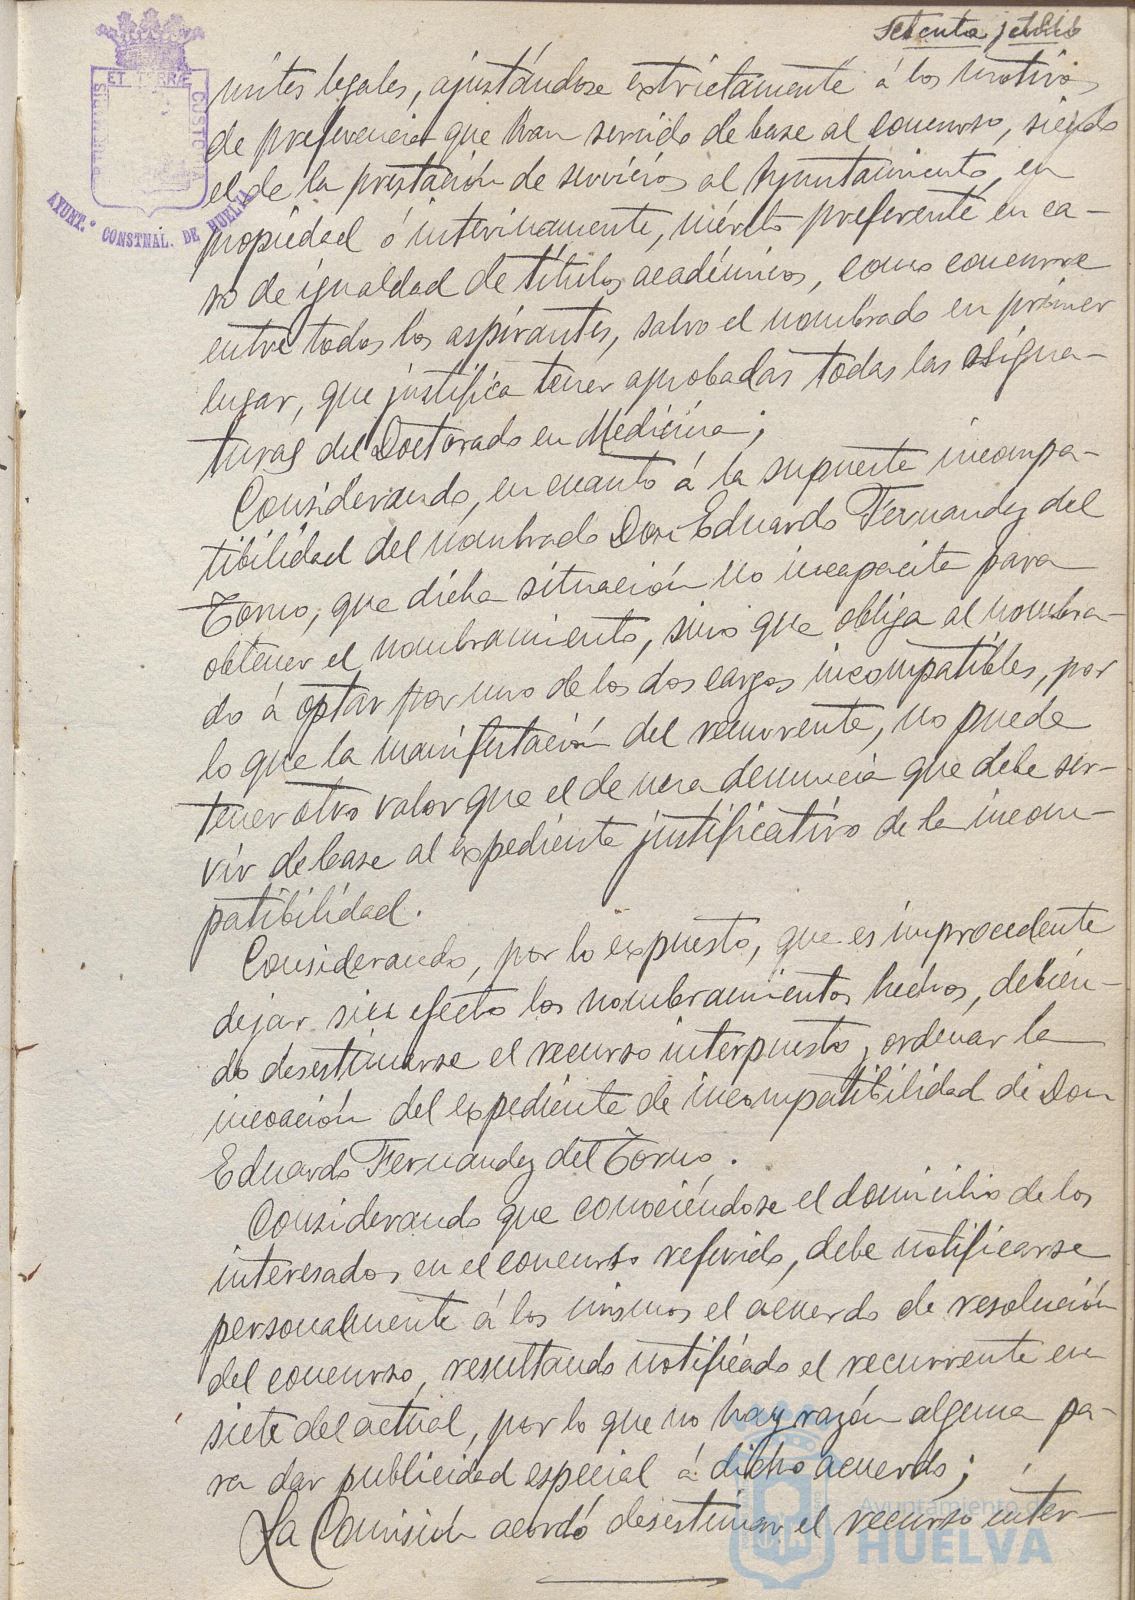 Setenta y ocho
ET TERRÆ CUSTODIA
AYUNT.º CONSTNAL. DE HUELVA
mites legales, ajustándose extrictamente á los motivos
de preferencia que han servido de base al concurso, siendo
el de la prestación de servicios al Ayuntamiento, en
propiedad ó interinamente, mérito preferente en ca-
so de igualdad de títulos académicos, como concurre
entre todos los aspirantes, salvo el nombrado en primer
lugar, que justifica tener aprobadas todas las asigna-
turas del Doctorado en Medicina;
Considerando, en cuanto á la supuesta incompa-
tibilidad del nombrado Don Eduardo Fernandez del
Torno, que dicha situación no incapacita para
obtener el nombramiento, sino que obliga al nombra-
do á optar por uno de los dos cargos incompatibles, por
lo que la manifestación del recurrente, no puede
tener otro valor que el de una denuncia que debe ser-
vir de base al expediente justificativo de la incom-
patibilidad.
Considerando, por lo expuesto, que es improcedente
dejar sin efecto los nombramientos hechos, debien-
do desestimarse el recurso interpuesto, ordenar la
incoación del expediente de incompatibilidad de Don
Eduardo Fernandez del Torno.
Considerando que conociéndose el domicilio de los
interesados en el concurso referido, debe notificarse
personalmente á los mismos el acuerdo de resolución
del concurso, resultando notificado el recurrente en
siete del actual, por lo que no hay razón alguna pa-
ra dar publicidad especial á dicho acuerdo;
La Comisión acordó desestimar el recurso inter-
Ayuntamiento de
HUELVA